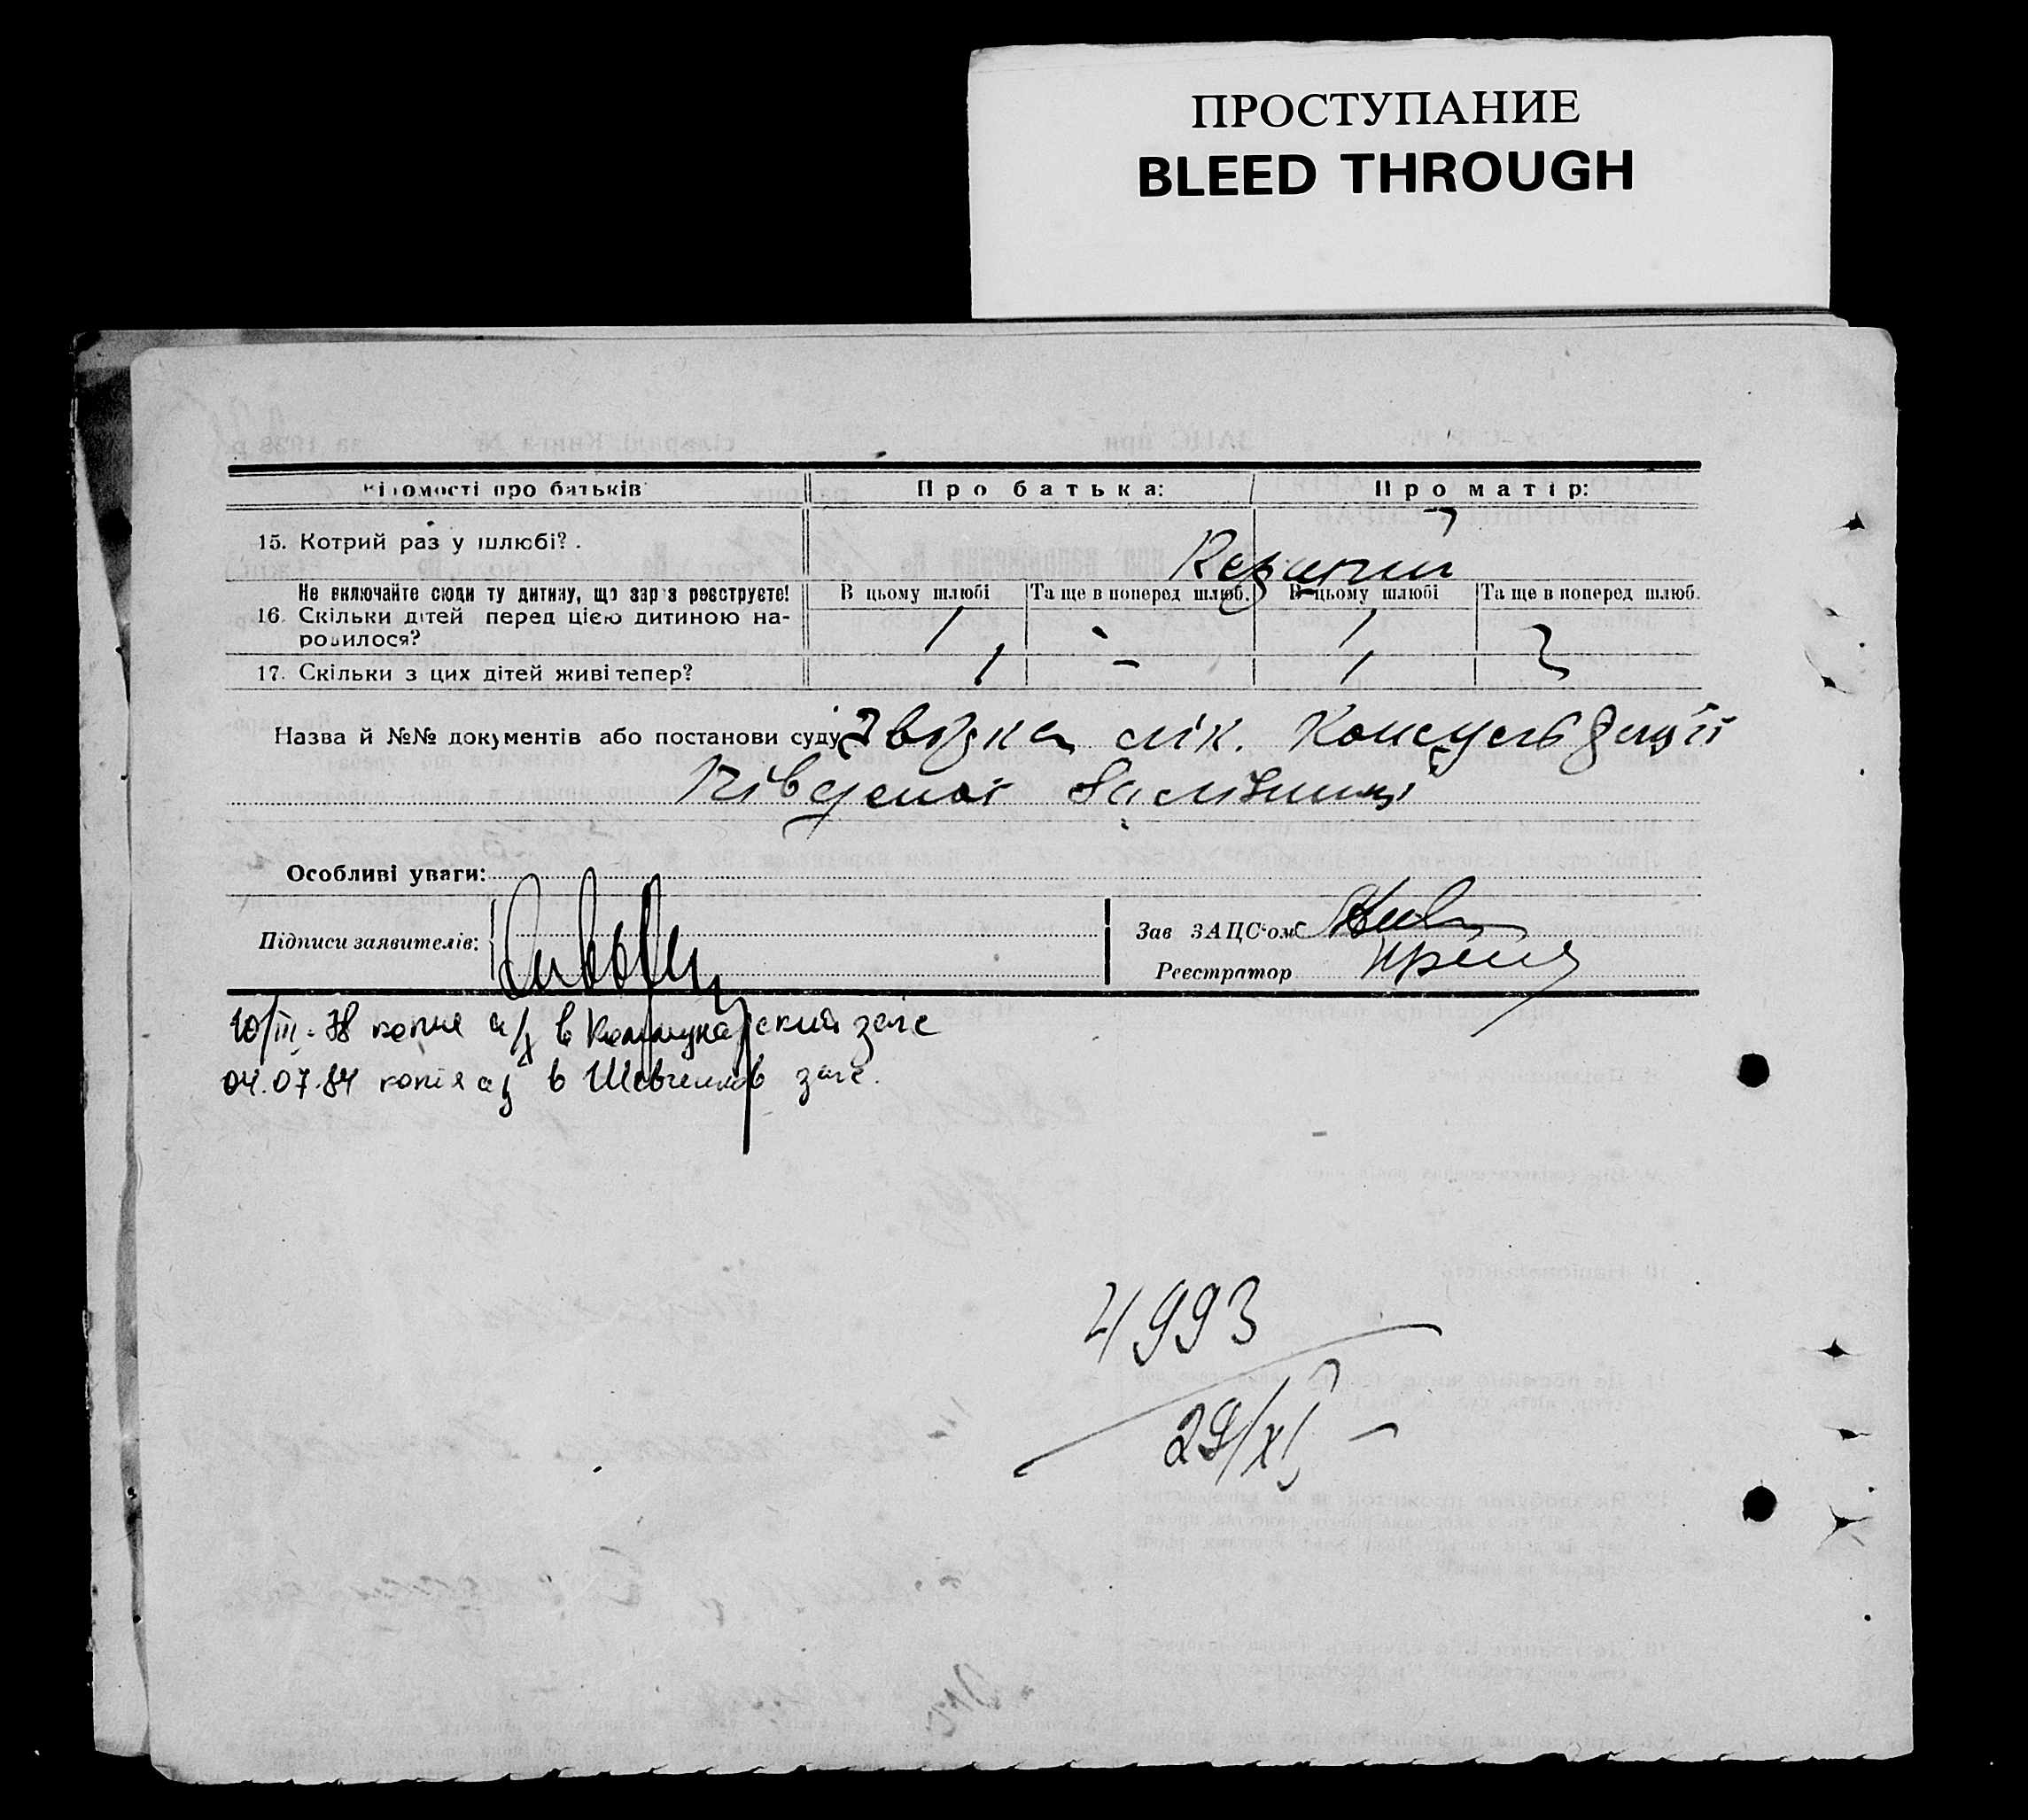 ПРОСТУПАНИЕ
BLEED THROUGH
Відомості про батьків
Про батька:
Про матір:
15. Котрий раз у шлюбі?.
Не включайте сюди ту дитину, що зараз реєструєте!
16. Скільки дітей перед цією дитиною на-
родилося?
В цьому шлюбі
Та ще в поперед шлюб.
В цьому шлюбі
Та ще в поперед шлюб.
1 - 1
17. Скільки з цих дітей живі тепер?
1 - 1
Назва й №№ документів або постанови суду Звідка лік. Консультації
Південої Залізниці
Особливі уваги:
Підписи заявителів:
Зав ЗАЦС'ом
Реєстратор
10/III-78 копия а/з в Коммунарский загс
04.07.84 копия аз в Шевченков загс.
4993
29/XI -